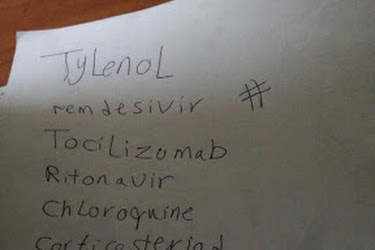 Tylenol
remdesivir #
Tocilizumab
Ritonavir
Chloroquine
Corticosteriod